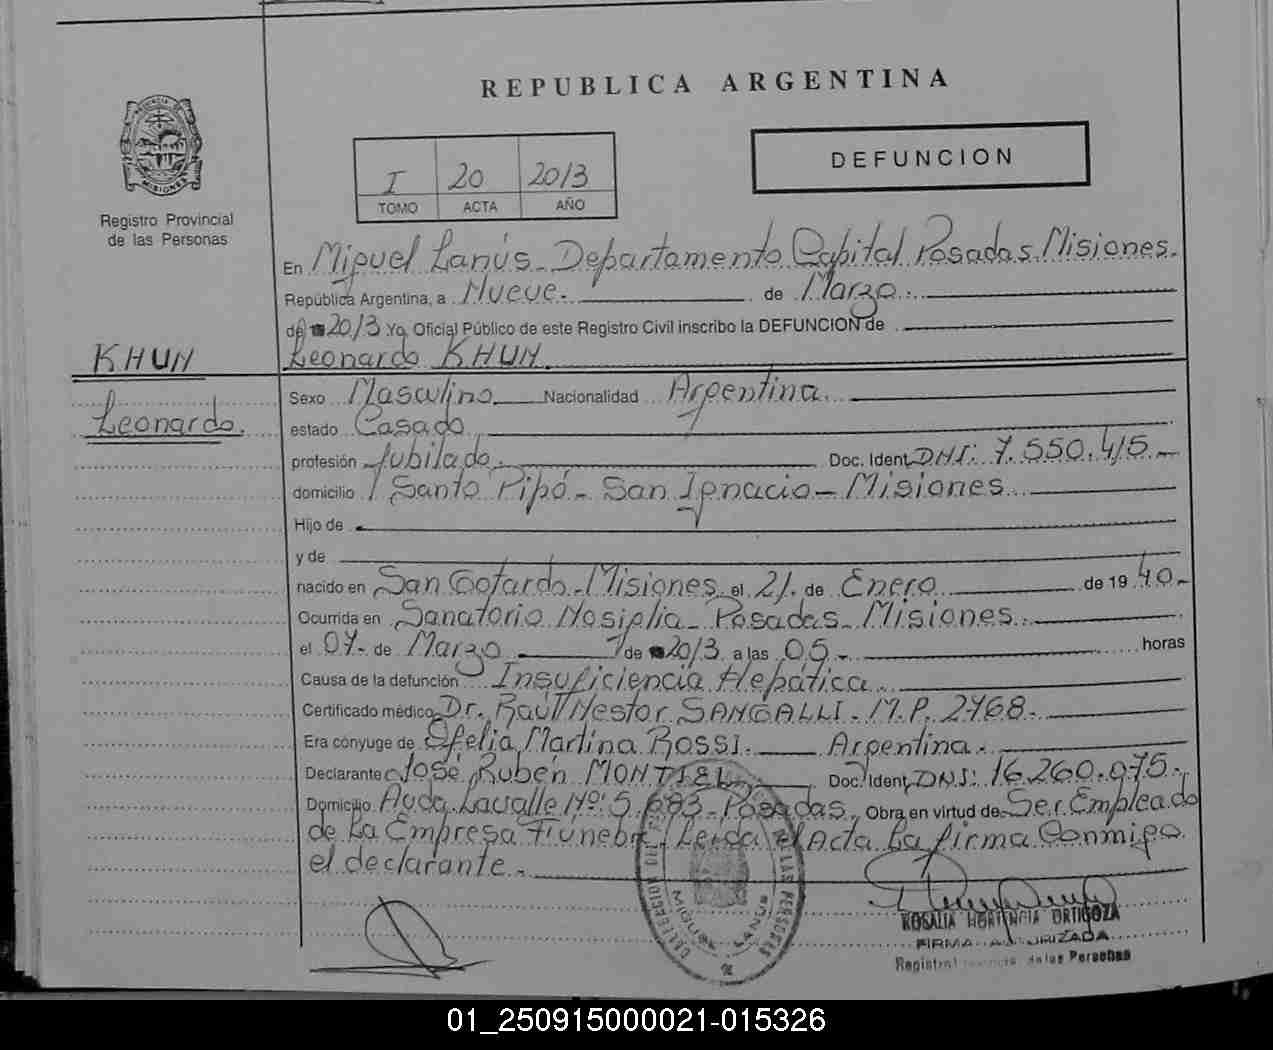 REPUBLICA ARGENTINA
Registro Provincial
de las Personas
I 20 2013
TOMO ACTA AÑO
DEFUNCION
En Miguel Lanús - Departamento Capital Posadas Misiones.
República Argentina, a Nueve. de Marzo.
de 2013 Yo Oficial Público de este Registro Civil inscribo la DEFUNCION de
Leonardo KHUN.
KHUN
Leonardo.
Sexo Masculino Nacionalidad Argentina.
estado Casado
profesión Jubilado. Doc. Ident. DNI: 7.550.415.-
domicilio Santo Pipó - San Ignacio - Misiones
Hijo de
y de
nacido en San Gotardo - Misiones el 21. de Enero de 1940.-
Ocurrida en Sanatorio Nosiglia - Posadas - Misiones.
el 07. de Marzo de 2013 a las 05.- horas
Causa de la defunción Insuficiencia Hepática.
Certificado médico Dr. Raúl Nestor SANGALLI. M.P. 2468.-
Era cónyuge de Ofelia Martina Rossi. Argentina.
Declarante José Rubén MONTIEL Doc. Ident. DNI: 16.260.075.-
Domicilio Avda. Lavalle Nº: 5.683 - Posadas. Obra en virtud de Ser Empleado
de La Empresa Funebre. Leida el Acta La firma Conmigo
el declarante.-
DELEGACION DE LAS PERSONAS
MIGUEL LANUS
ROSALIA HORTENCIA ORTIGOZA
FIRMA AUTORIZADA
Registro Provincial de las Personas
01_250915000021-015326